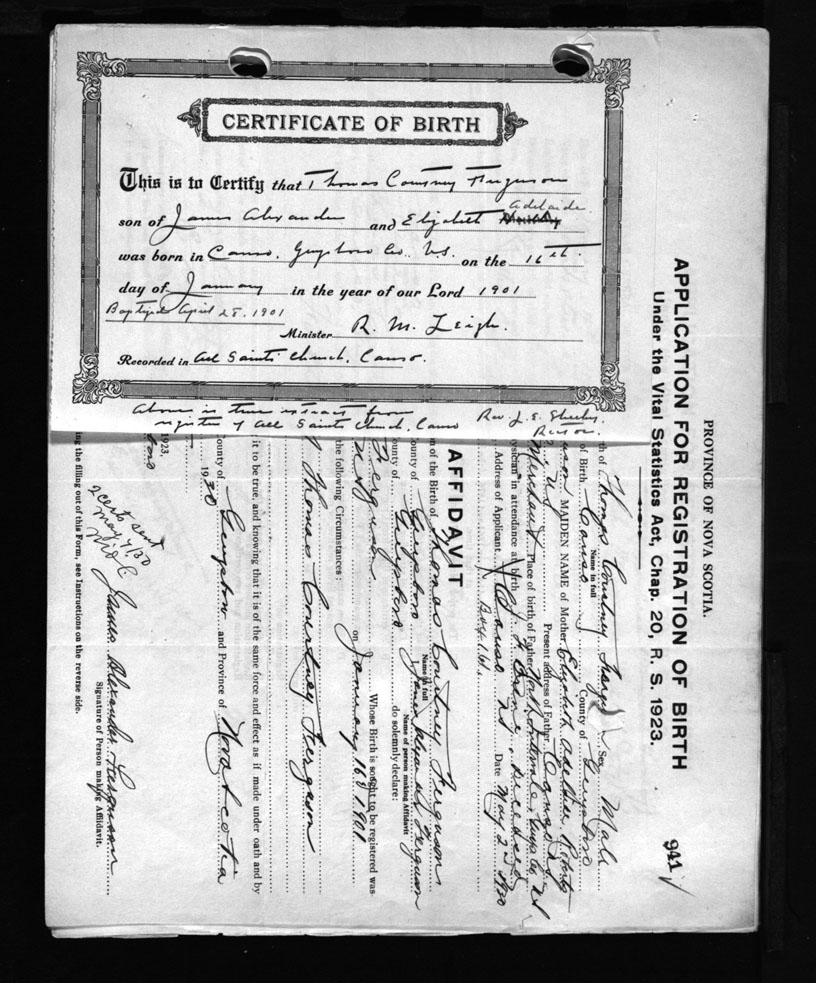 CERTIFICATE OF BIRTH
This is to Certify that Thomas Courtney Ferguson
son of James Alexander and Elizabeth Adelaide
was born in Canso, Guysboro Co. N.S. on the 16th
day of January in the year of our Lord 1901
Baptized April 28. 1901
Minister R. M. Leigh.
Recorded in All Saints Church, Canso.
Above is true extract from
register of All Saints Church, Canso
Rev. J. E.
Rector.
PROVINCE OF NOVA SCOTIA.
APPLICATION FOR REGISTRATION OF BIRTH
Under the Vital Statistics Act, Chap. 20, R. S. 1923.
941
th of Thomas Courtney Sex Male
Name in full
of Birth Canso County of Guysboro
MAIDEN NAME of Mother Elizabeth
Present address of Father Canso
Merchant Place of birth of Father
ysician in attendance at birth Deceased
Address of Applicant Canso NS Date May 2nd 1930
Box 161.
AFFIDAVIT
n of the Birth of Thomas Courtney Ferguson
Name in full
ounty of Guysboro James Alexander Ferguson
Name of person making Affidavit
ounty of Guysboro do solemnly declare:
Ferguson Whose Birth is sought to be registered was
N.S. on January 16th 1901
the following Circumstances:
Thomas Courtney Ferguson
it to be true, and knowing that it is of the same force and effect as if made under oath and by
ounty of Guysboro and Province of Nova Scotia
1930
1923.
James Alexander Ferguson
Signature of Person making Affidavit.
2 certs sent
May 7/30
ing the filling out of this Form, see Instructions on the reverse side.